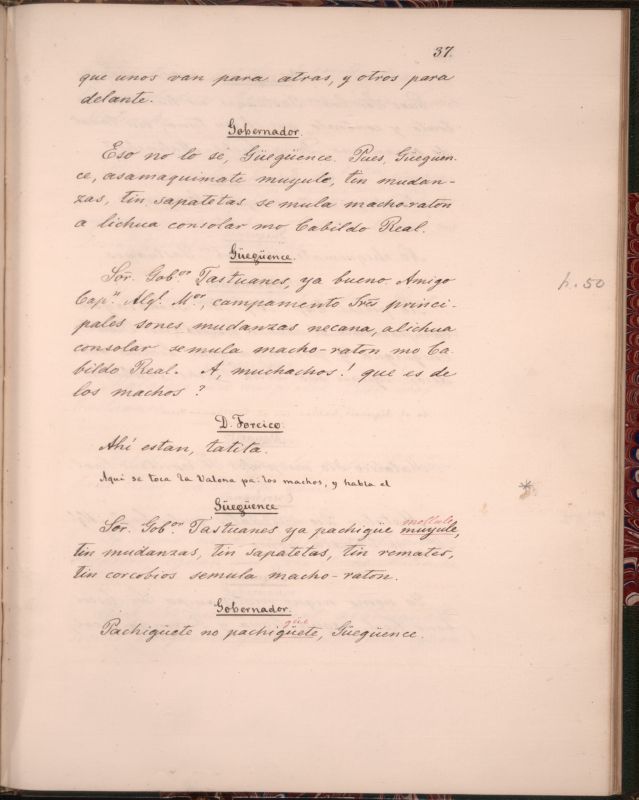 37.
que unos van para atras, y otros para
delante.
Gobernador.
Eso no lo sé, Güegüence. Pues, Güegüen-
ce, asamaquimate muyule, tin mudan-
zas, tin sapatetas semula macho-raton
a lichua consolar mo Cabildo Real.
Güegüence.
Sőr. Gobᵒʳ Tastuanes, ya bueno. Amigo
Capⁿ. Algˡ. Mᵒʳ, campamento Tres princi-
pales sones mudanzas necana, a lichua
consolar semula macho-raton mo Ca-
bildo Real. A, muchachos! que es de
los machos?
p. 50
D. Forcico.
Ahí estan, tatita.
Aqui se toca la Valona pa. los machos, y habla el
Güegüence
Sőr. Gobᵒʳ. Tastuanes ya pachigüe muyule,
tin mudanzas, tin sapatetas, tin remates,
tin corcobios semula macho-raton.
Gobernador.
güe
Pachigüete no pachigüete, Güegüence.